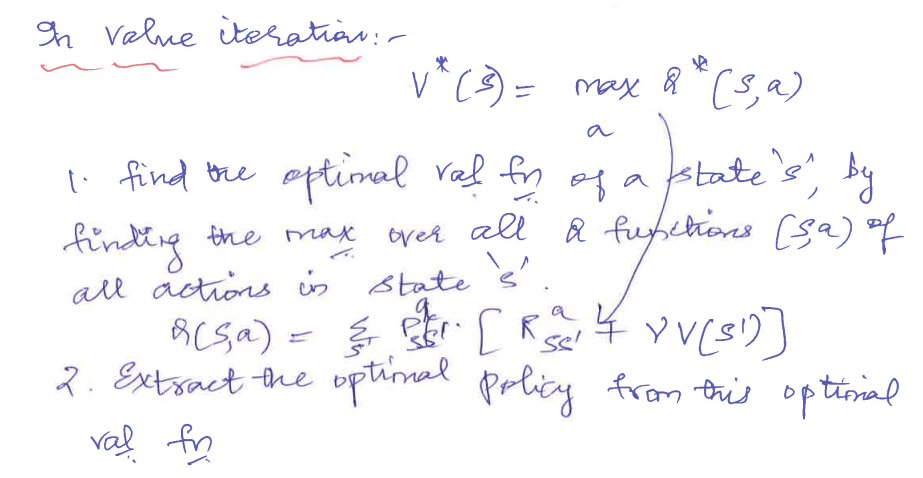 In value iteration:-
V*(s) = max Q*(s,a)
a
1. find the optimal val fn of a state 's', by
finding the max over all Q functions (s,a) of
all actions in state 's'.
Q(s,a) = Σs' Pᵃss'. [Rᵃss' + γV(s')]
2. Extract the optimal policy from this optimal
val fn